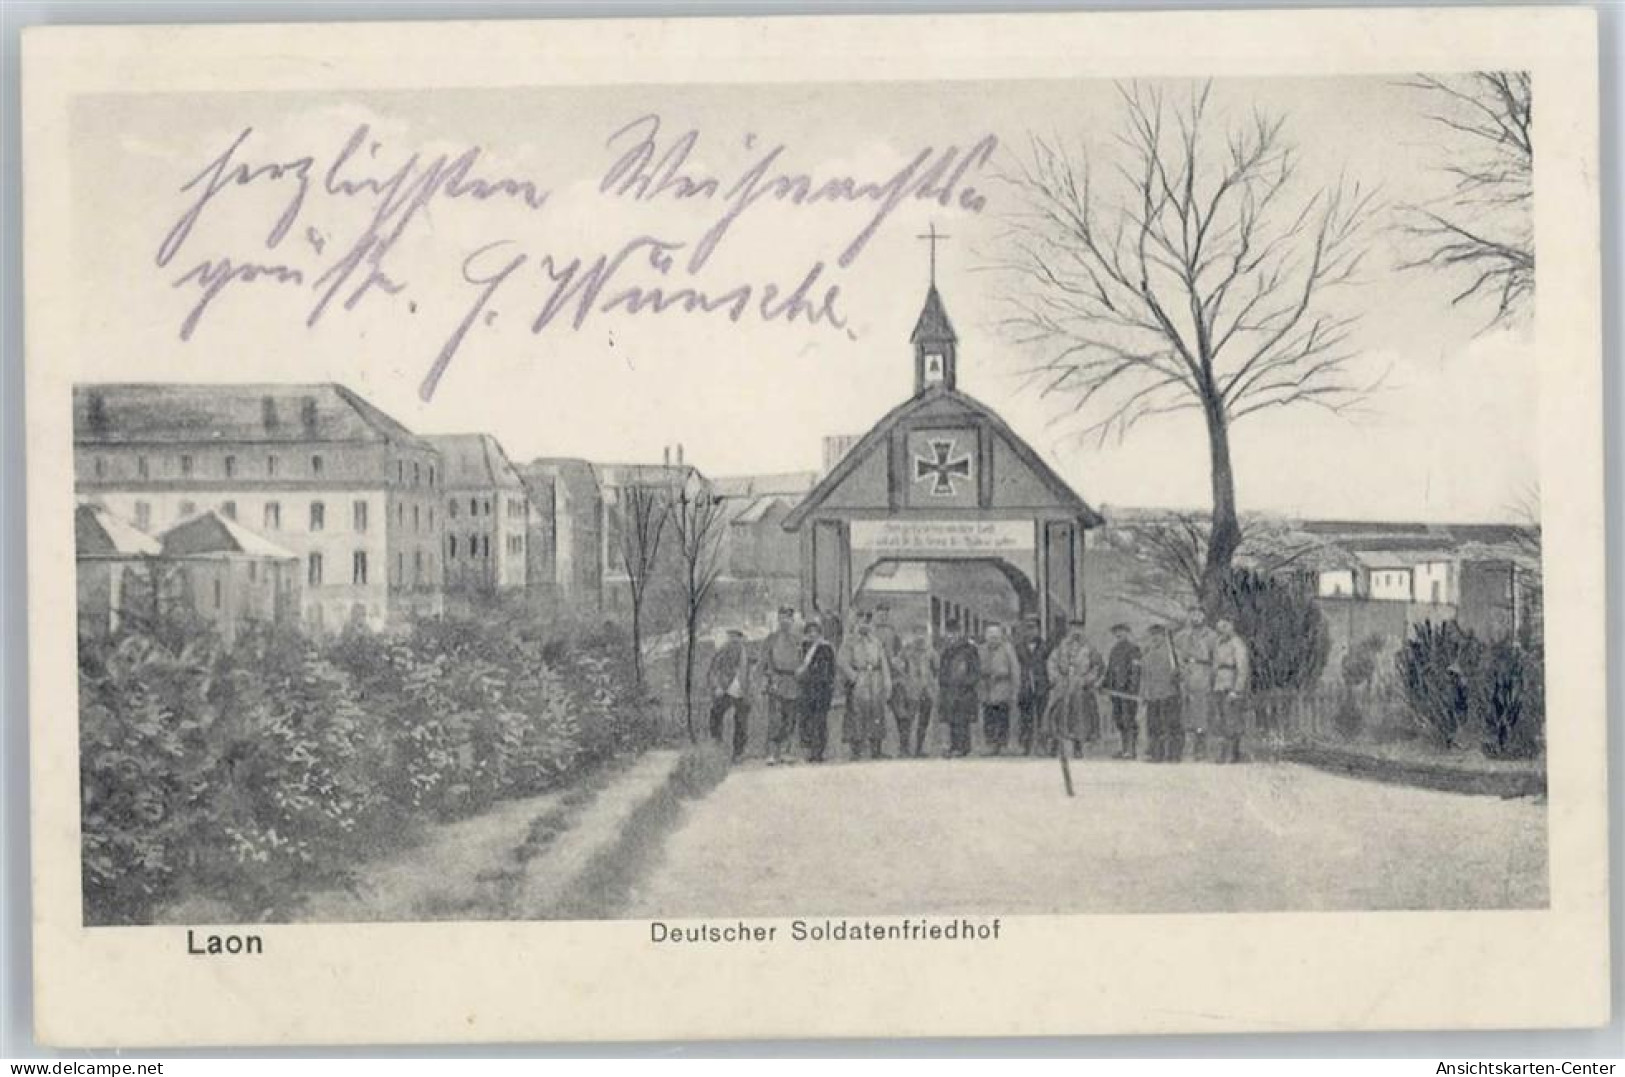 herzlichsten Weihnachts=
grüße. G. Wünsche.
Laon
Deutscher Soldatenfriedhof
delcampe.net
Ansichtskarten-Center